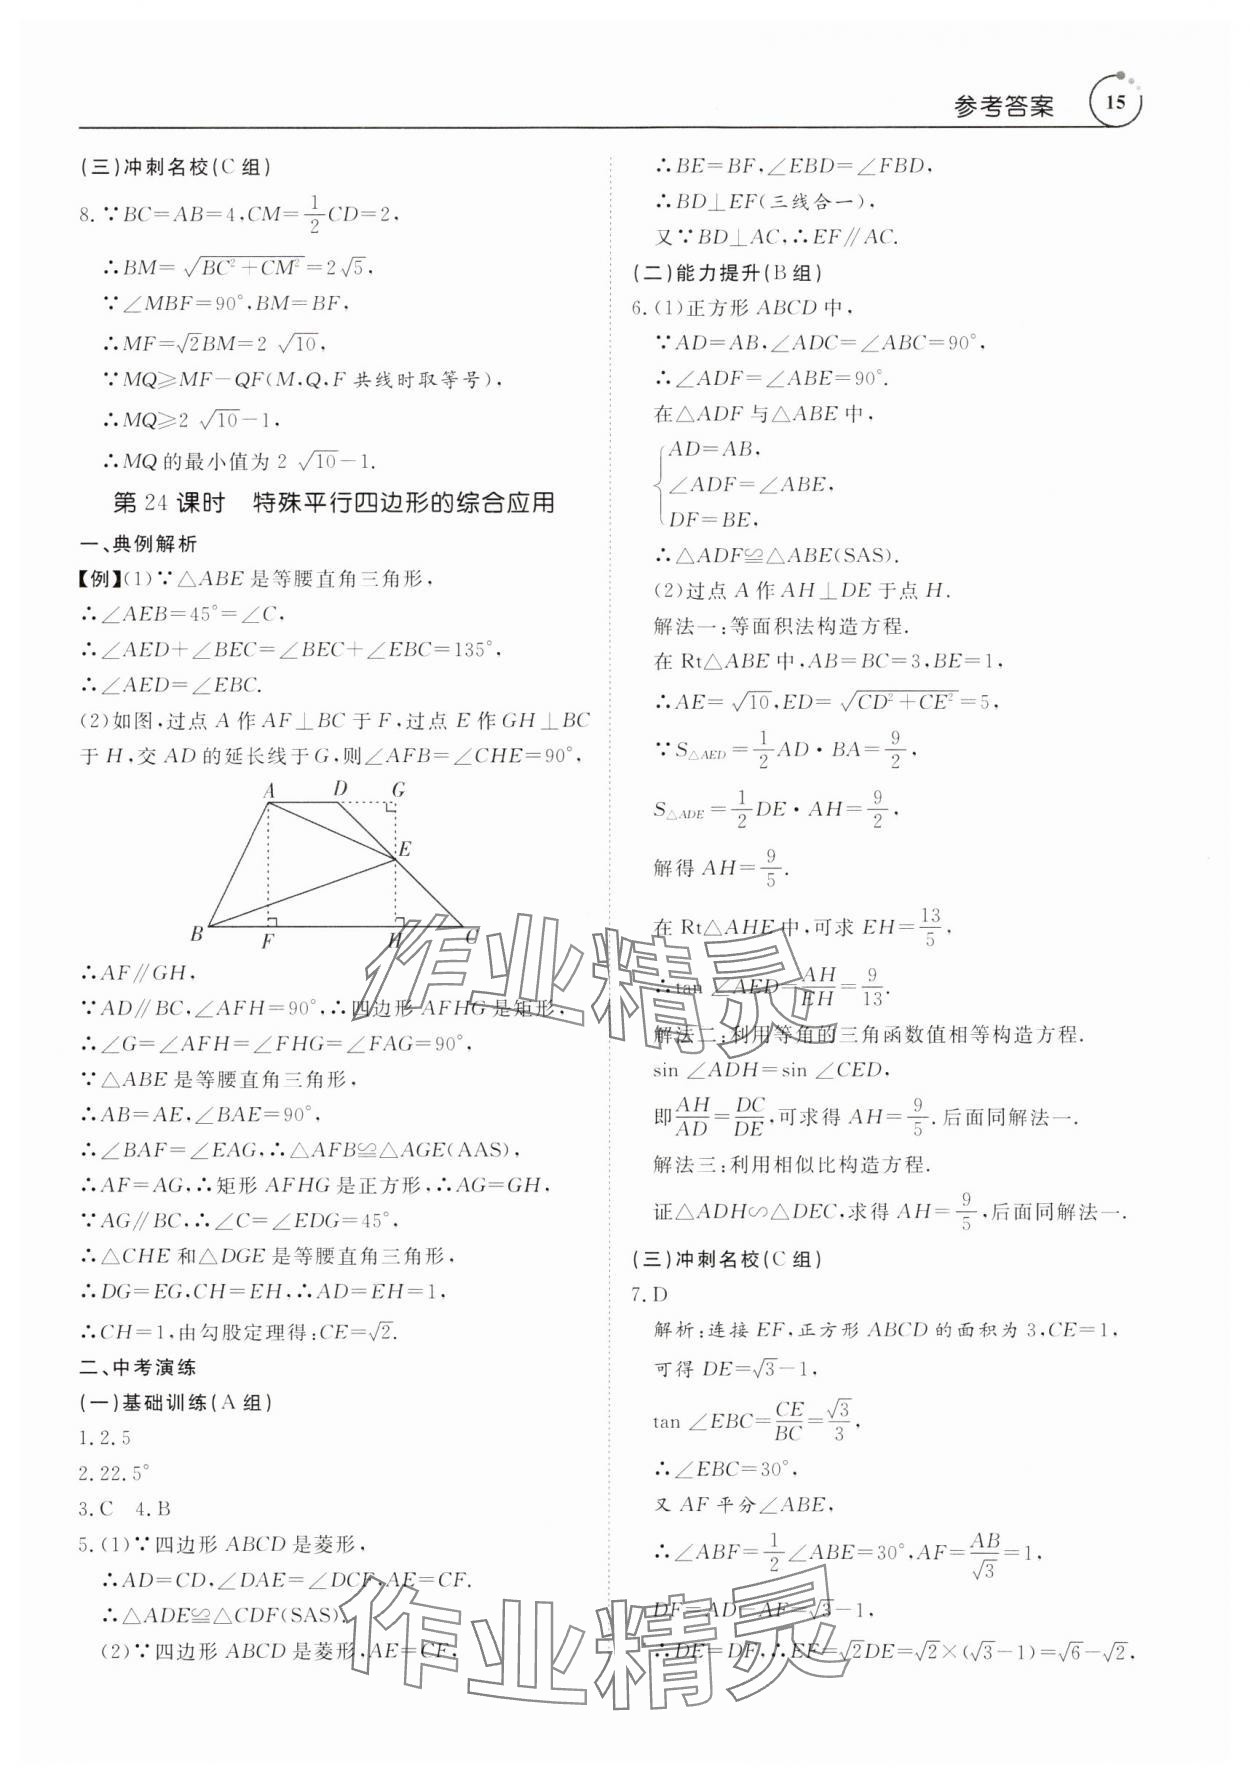 参考答案 15
(三)冲刺名校(C 组)
8.∵BC=AB=4,CM=1/2CD=2,
∴BM=√(BC²+CM²)=2√5,
∵∠MBF=90°,BM=BF,
∴MF=√2BM=2 √10,
∵MQ⩾MF-QF(M,Q,F 共线时取等号),
∴MQ⩾2 √10-1,
∴MQ 的最小值为 2 √10-1.
第 24 课时 特殊平行四边形的综合应用
一、典例解析
【例】(1)∵△ABE 是等腰直角三角形,
∴∠AEB=45°=∠C,
∴∠AED+∠BEC=∠BEC+∠EBC=135°,
∴∠AED=∠EBC.
(2)如图,过点 A 作 AF⊥BC 于 F,过点 E 作 GH⊥BC
于 H,交 AD 的延长线于 G,则∠AFB=∠CHE=90°,
A D G
E
B F H C
∴AF∥GH,
∵AD∥BC,∠AFH=90°,∴四边形 AFHG 是矩形,
∴∠G=∠AFH=∠FHG=∠FAG=90°,
∵△ABE 是等腰直角三角形,
∴AB=AE,∠BAE=90°,
∴∠BAF=∠EAG,∴△AFB≌△AGE(AAS),
∴AF=AG,∴矩形 AFHG 是正方形,∴AG=GH,
∵AG∥BC,∴∠C=∠EDG=45°,
∴△CHE 和△DGE 是等腰直角三角形,
∴DG=EG,CH=EH,∴AD=EH=1,
∴CH=1,由勾股定理得:CE=√2.
二、中考演练
(一)基础训练(A 组)
1.2.5
2.22.5°
3.C 4.B
5.(1)∵四边形 ABCD 是菱形,
∴AD=CD,∠DAE=∠DCF,AE=CF.
∴△ADE≌△CDF(SAS).
(2)∵四边形 ABCD 是菱形,AE=CF,
∴BE=BF,∠EBD=∠FBD,
∴BD⊥EF(三线合一),
又∵BD⊥AC,∴EF∥AC.
(二)能力提升(B 组)
6.(1)正方形 ABCD 中,
∵AD=AB,∠ADC=∠ABC=90°,
∴∠ADF=∠ABE=90°.
在△ADF 与△ABE 中,
AD=AB,
∠ADF=∠ABE,
DF=BE,
∴△ADF≌△ABE(SAS).
(2)过点 A 作 AH⊥DE 于点 H.
解法一:等面积法构造方程.
在 Rt△ABE 中,AB=BC=3,BE=1,
∴AE=√10,ED=√(CD²+CE²)=5,
∵S△AED=1/2AD·BA=9/2,
S△ADE=1/2DE·AH=9/2,
解得 AH=9/5.
在 Rt△AHE 中,可求 EH=13/5,
∴tan∠AED=AH/EH=9/13.
解法二:利用等角的三角函数值相等构造方程.
sin∠ADH=sin∠CED,
即AH/AD=DC/DE,可求得 AH=9/5.后面同解法一.
解法三:利用相似比构造方程.
证△ADH∽△DEC,求得 AH=9/5,后面同解法一.
(三)冲刺名校(C 组)
7.D
解析:连接 EF,正方形 ABCD 的面积为 3,CE=1,
可得 DE=√3-1,
tan∠EBC=CE/BC=√3/3,
∴∠EBC=30°,
又 AF 平分∠ABE,
∴∠ABF=1/2∠ABE=30°,AF=AB/√3=1,
DF=AD-AF=√3-1,
∴DE=DF,∴EF=√2DE=√2×(√3-1)=√6-√2,
作业精灵
作业精灵